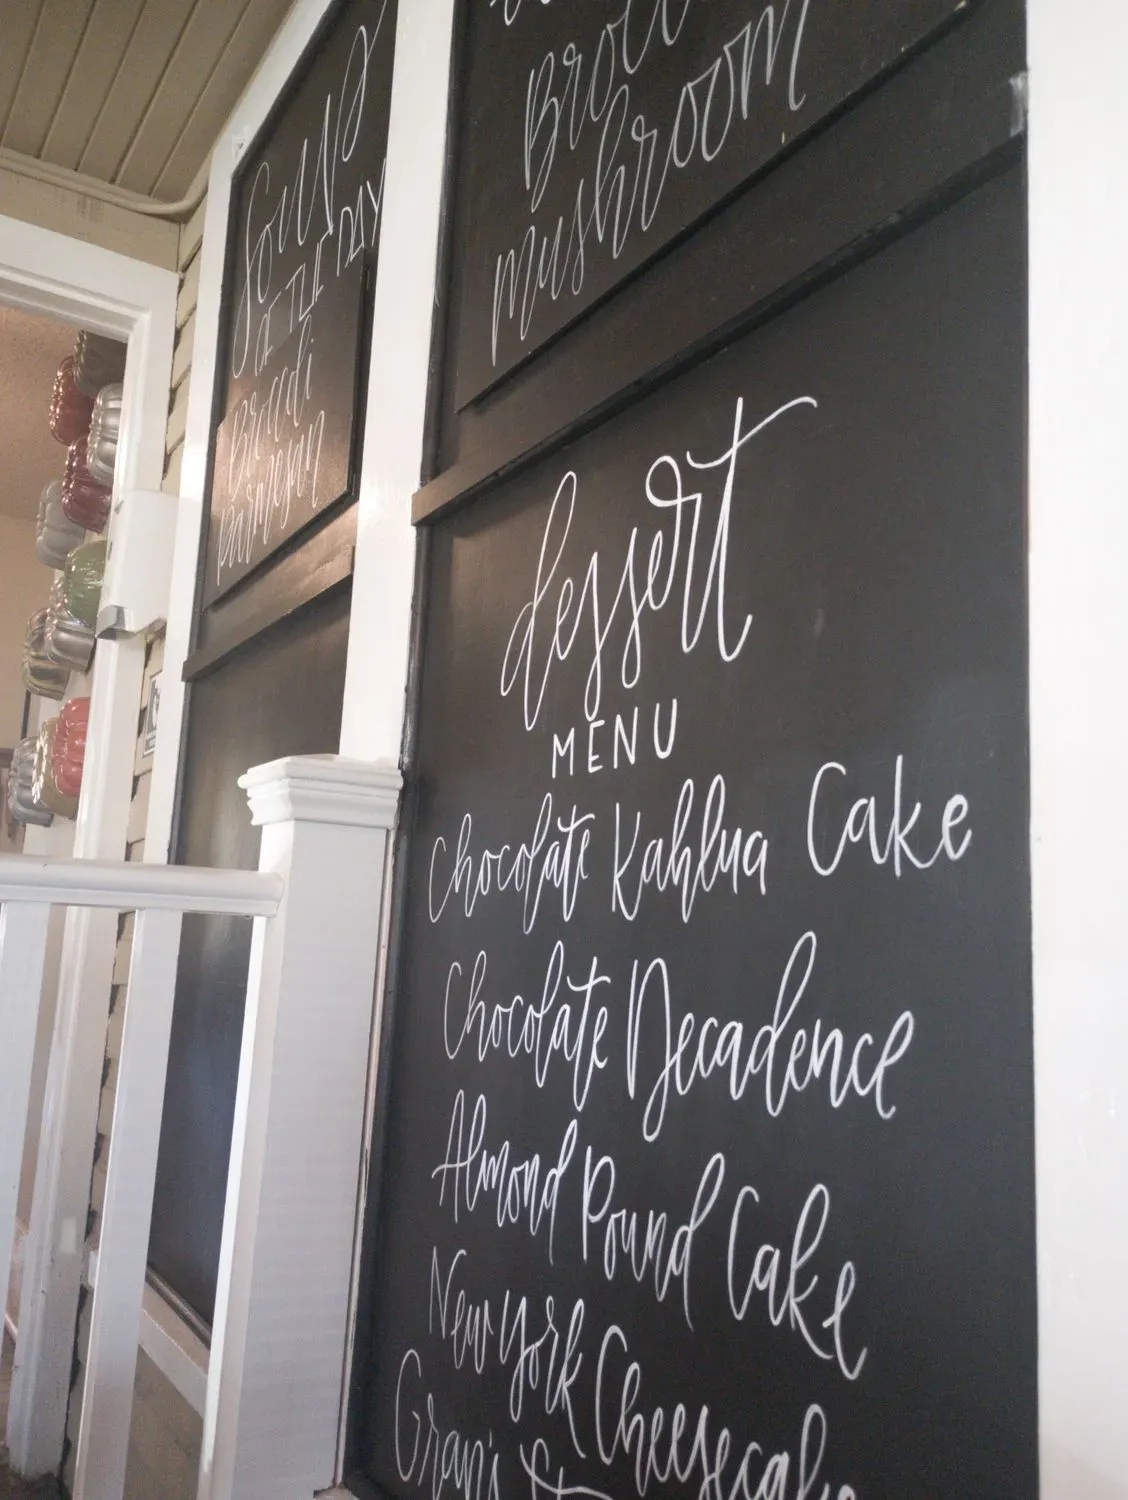 Soups
of THE DAY
Broccoli
parmesan
mushroom
dessert
MENU
Chocolate Kahlua Cake
Chocolate Decadence
Almond Pound Cake
New York Cheesecake